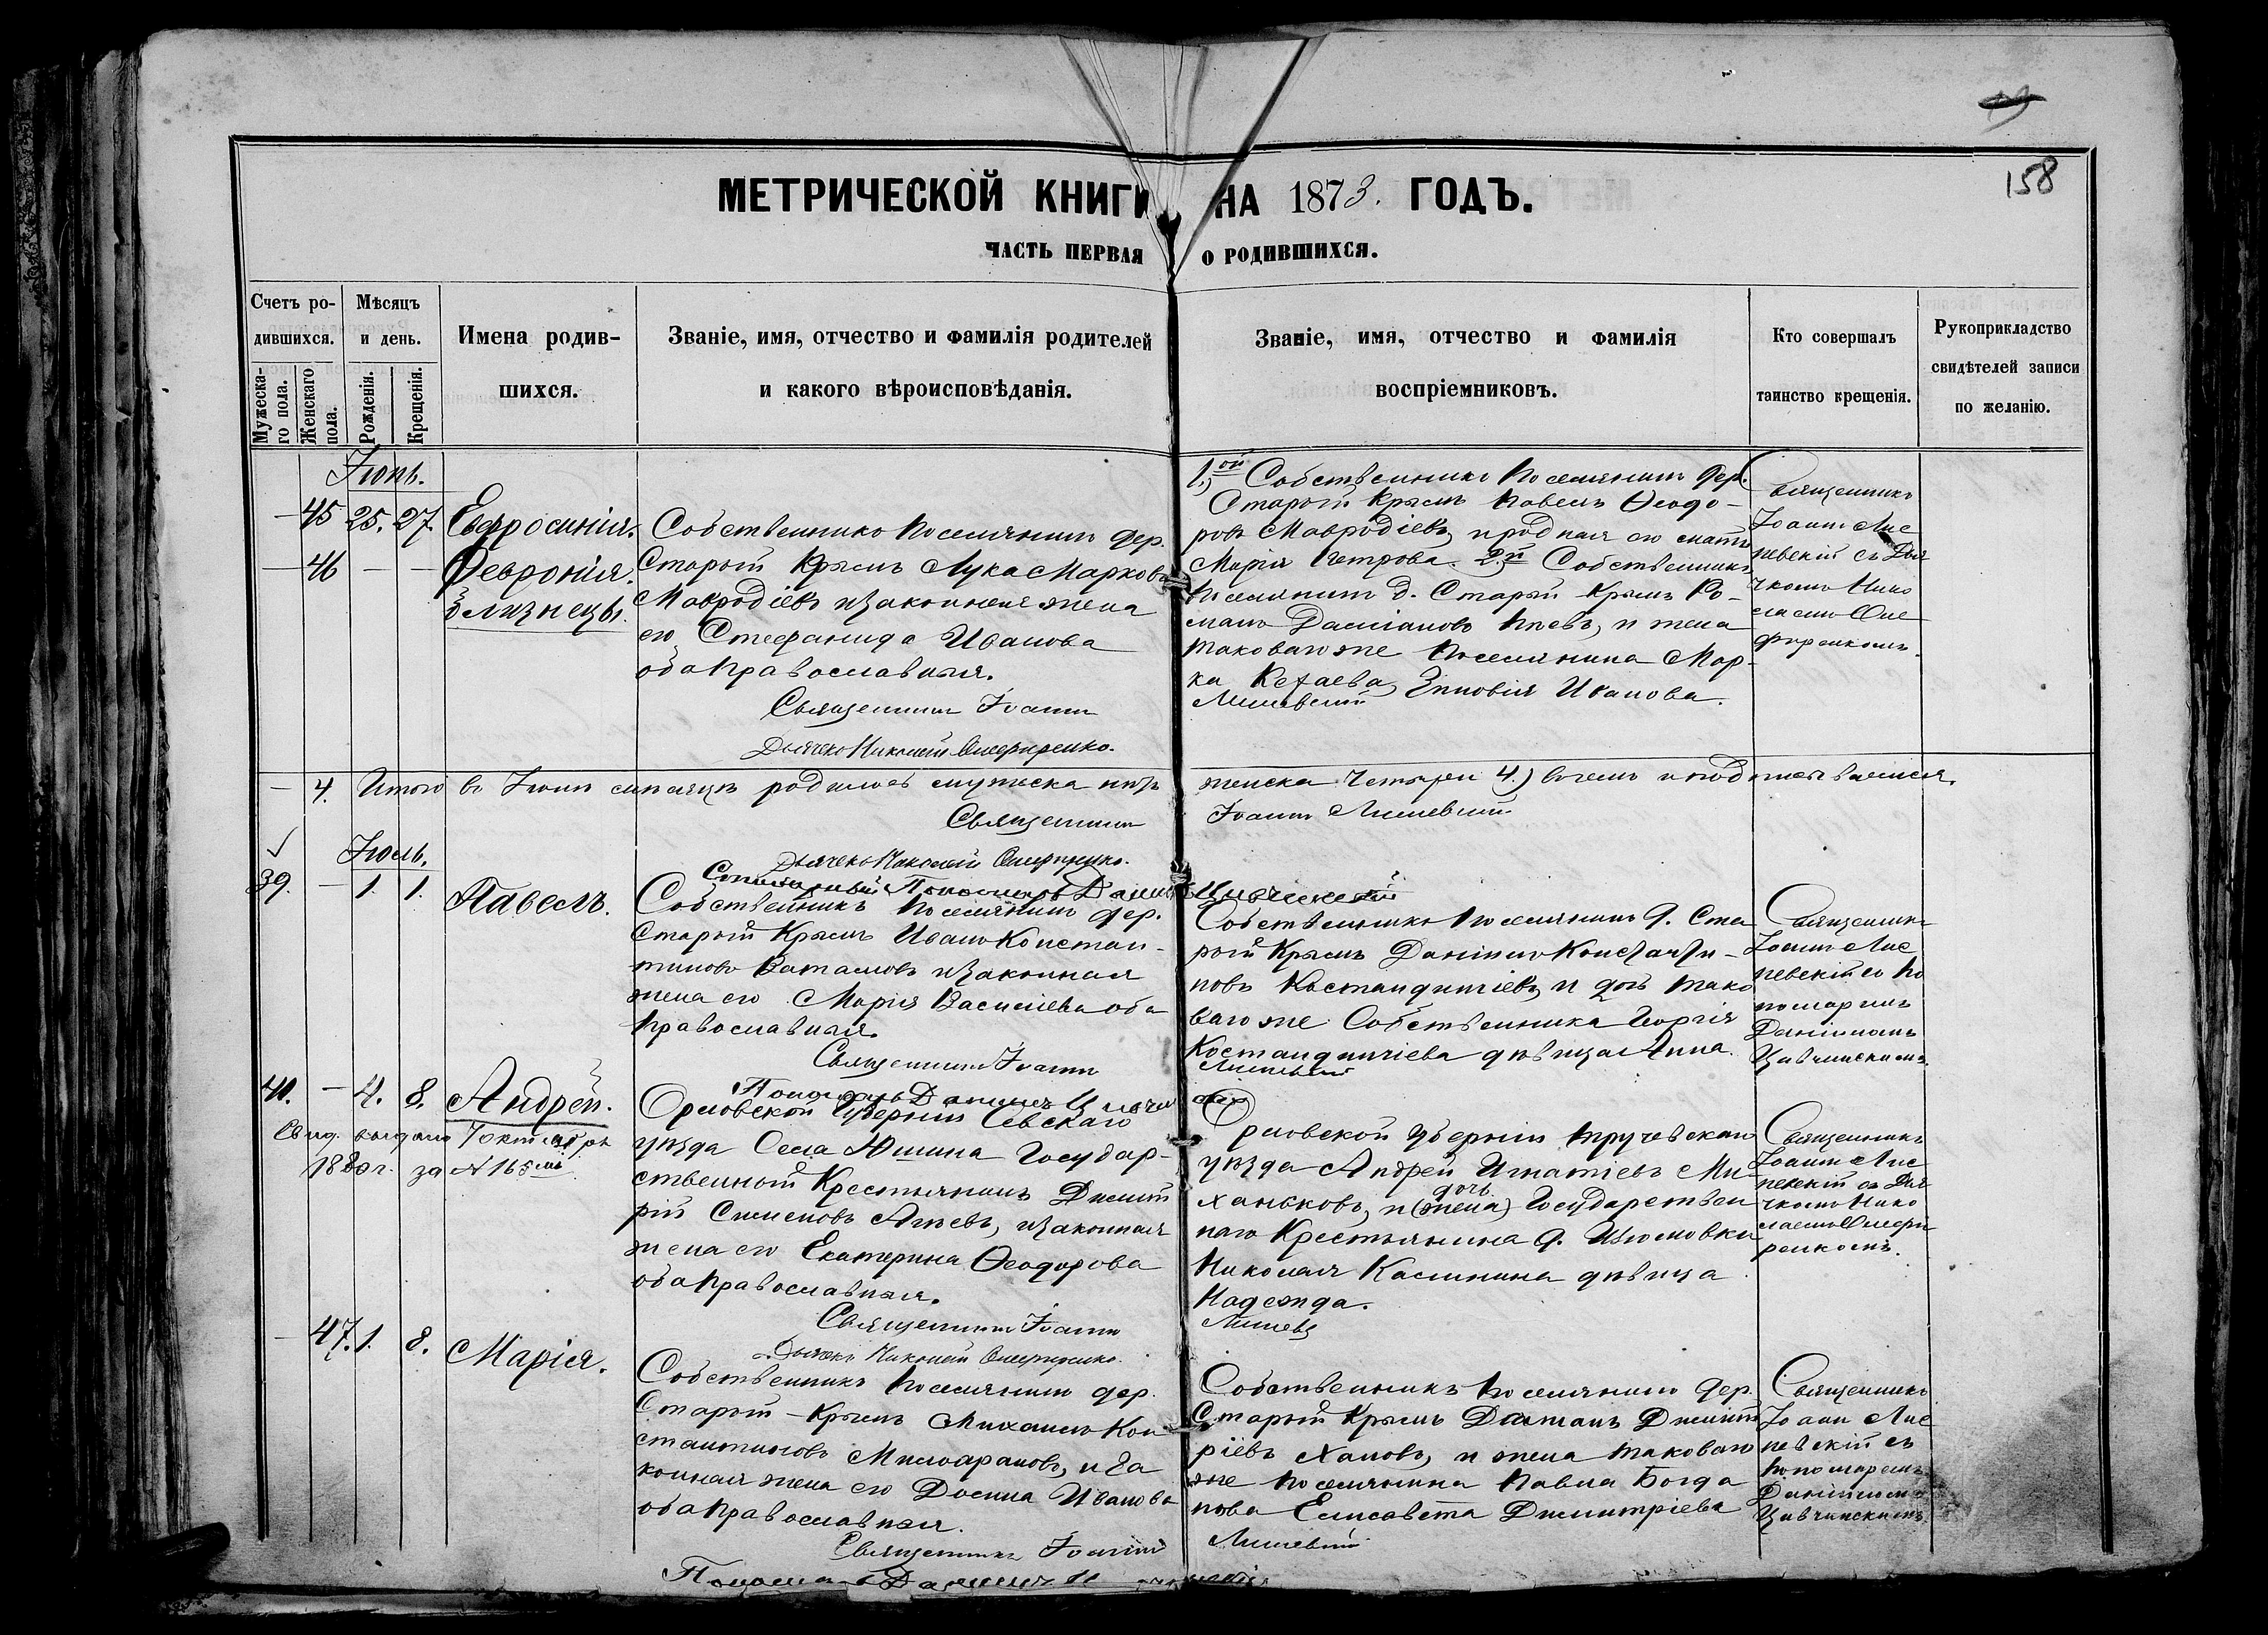 158
МЕТРИЧЕСКОЙ КНИГИ НА 1873. ГОДЪ.
ЧАСТЬ ПЕРВАЯ О РОДИВШИХСЯ.
Счетъ ро-
дившихся.
Мужеска-
го пола.
Женскаго
пола.
Мѣсяцъ
и день.
Рожденія.
Крещенія.
Имена родив-
шихся.
Званіе, имя, отчество и фамилія родителей
и какого вѣроисповѣданія.
Званіе, имя, отчество и фамилія
воспріемниковъ.
Кто совершалъ
таинство крещенія.
Рукоприкладство
свидѣтелей записи
по желанію.
Іюнь.
— 45 25. 27. Евфросинія.
— 46 — — Февронія.
близнецы.
Собственникъ поселянинъ дер.
Старый Крымъ Лука Марковъ
Мавродіевъ и законная жена
его Стефанида Иванова
оба православныя.
Священникъ Іоаннъ
Дьячекъ Николай
1.ой Собственникъ поселянинъ дер.
Старый Крымъ Павелъ Ѳеодо-
ровъ Мавродіевъ, и родная его мать
Марія Петрова. 2.й Собственникъ
поселянинъ д. Старый Крымъ Ро-
манъ Даміановъ и жена
таковаго же поселянина Мар-
ка Кефаева Зиновія Иванова.
Священникъ
Іоаннъ Лис
невскій съ Дья
чкомъ Нико
лаемъ
— 4. Итого въ Іюнѣ мѣсяцѣ родилось мужеска нѣтъ
женска четыре 4) въ чемъ и подписываемся.
Священникъ
Іоаннъ
Дьячекъ Николай
Іюль.
39. — 1. 1. Павелъ.
Собственникъ поселянинъ дер.
Старый Крымъ Иванъ Констан-
тиновъ и законная
жена его Марія Васильева оба
православныя.
Священникъ Іоаннъ
Собственникъ поселянинъ д. Ста
рый Крымъ Даніилъ Константи-
новъ Костандиніевъ, и дочь тако
ваго же Собственника Георгія
дѣвица Анна.
Священникъ
Іоаннъ Лис
невскій съ по
номаремъ
Даніиломъ
40. — 4. 8. Андрей.
Свид. выдано 7 октября
1880 г. за № 165
Орловской Губерніи Севскаго
уѣзда Села Государ-
ственный Крестьянинъ Димит
рій Семеновъ и законная
жена его Екатерина Ѳеодорова
оба православныя.
Священникъ Іоаннъ
Дьячекъ Николай
Орловской Губерніи Тручевскаго
уѣзда Андрей Игнатіевъ Ми-
ханьковъ, и (жена) дочь Государствен
наго Крестьянина д. Игнатовки
Николая Калинина дѣвица
Надежда.
Священникъ
Іоаннъ Лис
невскій съ Дья
чкомъ Нико
лаемъ
— 47. 1. 8. Марія.
Собственникъ поселянинъ дер.
Старый-Крымъ Михаилъ Кон-
стантиновъ и за
конная жена его Домна Иванова
оба православныя.
Священникъ Іоаннъ
Собственникъ поселянинъ дер.
Старый Крымъ Димит
ріевъ и жена таковаго
же поселянина Павла Богда
нова Елисавета Димитріева
Священникъ
Іоаннъ Лис
невскій съ
пономаремъ
Даніиломъ